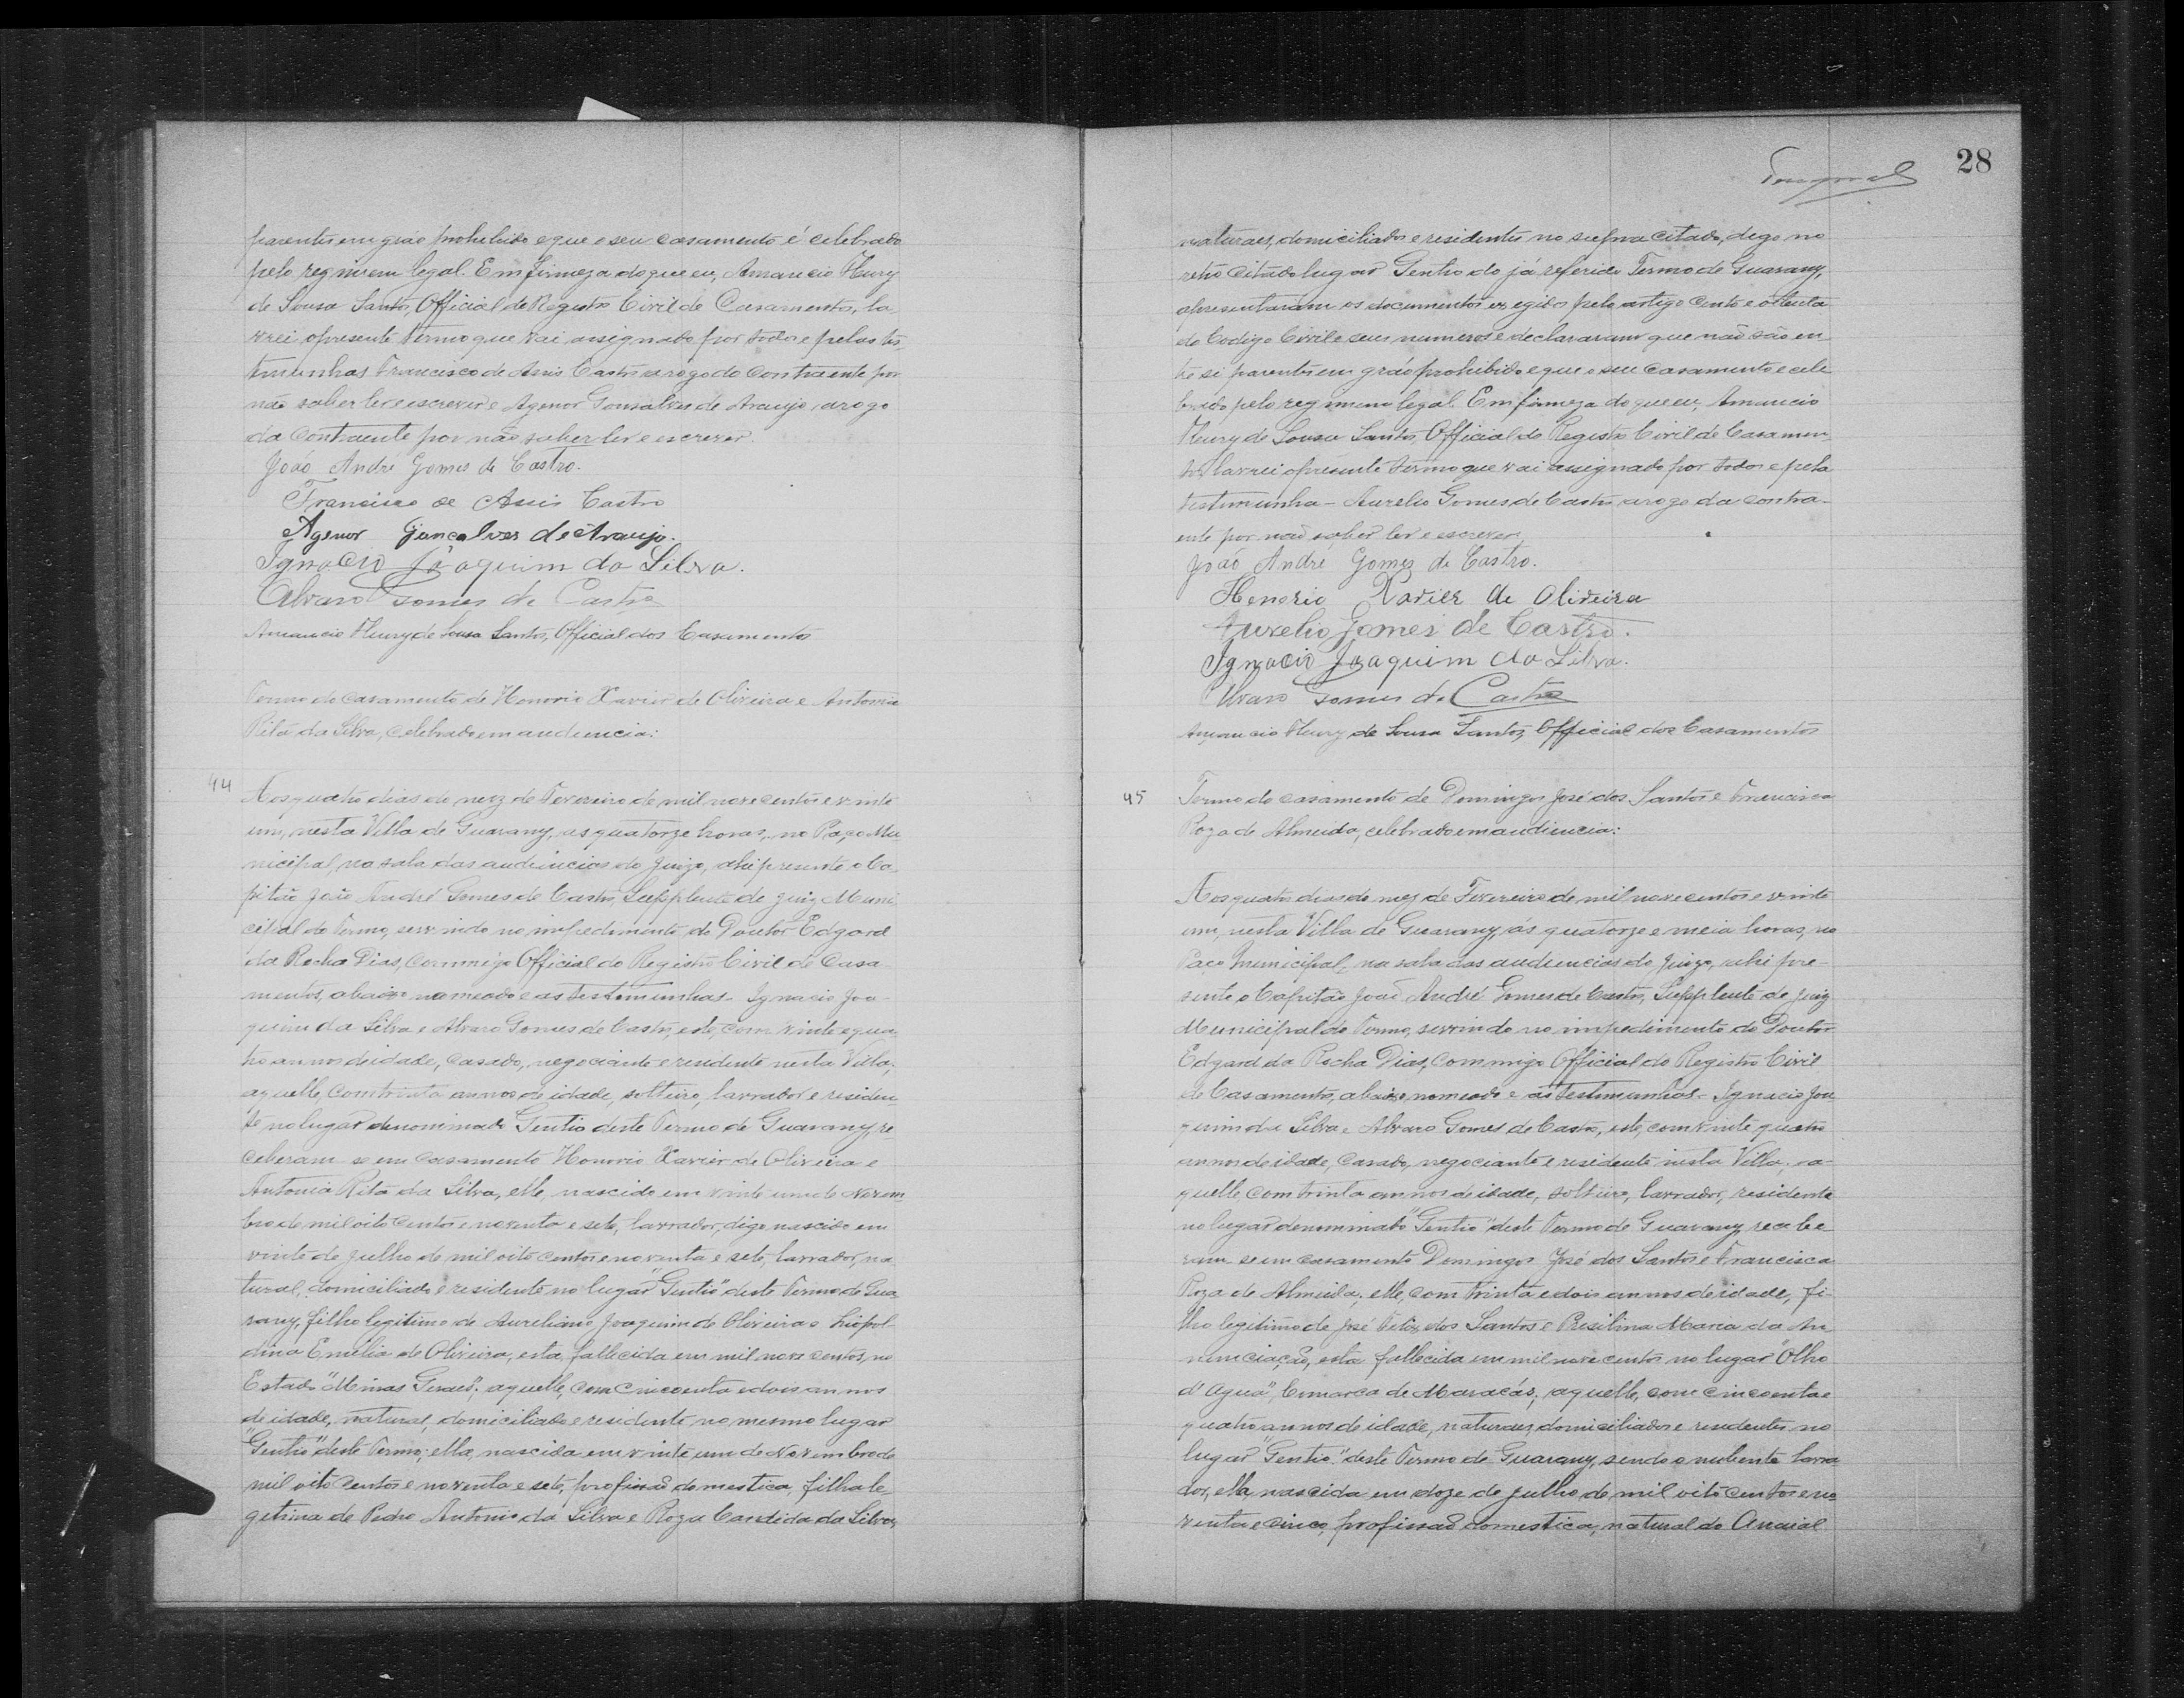 parentes em gráo prohibido e que o seu casamento é celebrado
pelo regimem legal. Em firmeza do que eu, Amancio Fleury
de Sousa Santos, Official do Registro Civil de Casamentos, la-
vrei o presente termo que vai assignado por todos e pelas tes-
timunhas Francisco de Assis Castro a rogo do contraente por
não saber ler e escrever e Agenor Gonsalves de Araujo, a rogo
da contraente por não saber ler e escrever.
João André Gomes de Castro.
Francisco de Assis Castro
Agenor Gonçalves de Araujo.
Ignacio Joaquim da Silva.
Alvaro Gomes de Castro
Amancio Fleury de Sousa Santos, Official dos Casamentos
Termo do casamento de Honorio Xavier de Oliveira e Antonia
Rita da Silva, celebrado em audiencia:
44
Aos quatro dias do mez de Fevereiro de mil nove centos e vinte
um, nesta Villa de Guarany, as quatorze horas, no Paço Mu-
nicipal, na sala das audiencias do Juizo, ahi presente o Ca-
pitão João André Gomes de Castro, Supplente de Juiz Muni-
cipal do Termo, servindo no impedimento do Doutor Edgard
da Rocha Dias, commigo Official do Registro Civil de Casa-
mentos, abaixo nomeado e as testimunhas - Ignacio Joa-
quim da Silva e Alvaro Gomes de Castro, este, com vinte e qua-
tro annos de idade, casado, negociante e residente nesta Villa;
aquelle, com trinta annos de idade, solteiro, lavrador e residen-
te no lugar denominado Gentio deste Termo de Guarany, re-
ceberam se em casamento Honorio Xavier de Oliveira e
Antonia Rita da Silva, elle, nascido em vinte um de Novem-
bro de mil oito centos e noventa e sete, lavrador, digo nascido em
vinte de Julho de mil oito centos e noventa e sete, lavrador, na-
tural, domiciliado e residente no lugar "Gentio" deste Termo de Gua-
rany, filho legitimo de Aureliano Joaquim de Oliveira e Liopol-
dina Emilia de Oliveira, esta, fallecida em mil nove centos, no
Estado "Minas Geraes"; aquelle, com cincoenta e dois annos
de idade, natural, domiciliado e residente no mesmo lugar
"Gentio" deste Termo; ella, nascida em vinte um de Novembro de
mil oito centos e noventa e sete, profissão domestica, filha le-
gitima de Pedro Antonio da Silva e Roza Candida da Silva,
28
naturaes, domiciliados e residentes no supra citado, digo no
retro citado lugar Gentio do já referido Termo de Guarany,
apresentaram os documentos exegidos pelo artigo cento e oitenta
do Codigo Civil e seus numeros e declararam que não são en-
tre si parentes em gráo prohibido e que o seu casamento e cele-
brado pelo regimem legal. Em firmeza do que eu, Amancio
Fleury de Sousa Santos, Official do Registro Civil de Casamen-
tos, lavrei o presente termo que vai assignado por todos e pela
testimunha - Aurelio Gomes de Castro a rogo da contra-
ente por não saber ler e escrever.
João André Gomes de Castro.
Honorio Xavier de Oliveira
Aurelio Gomes de Castro.
Ignacio Joaquim da Silva.
Alvaro Gomes de Castro
Amancio Fleury de Sousa Santos, Official dos Casamentos
45
Termo do casamento de Domingos José dos Santos e Francisca
Roza de Almeida, celebrado em audiencia:
Aos quatro dias do mez de Fevereiro de mil nove centos e vinte
um, nesta Villa de Guarany, ás quatorze e meia horas, no
Paço Municipal, na sala das audiencias do Juizo, ahi pre-
sente o Capitão João André Gomes de Castro, Supplente de Juiz
Municipal do Termo, servindo no impedimento do Doutor
Edgard da Rocha Dias, commigo Official do Registro Civil
de Casamentos, abaixo nomeado e as testimunhas - Ignacio Joa-
quim da Silva e Alvaro Gomes de Castro, este, com vinte quatro
annos de idade, casado, negociante e residente nesta Villa; a-
quelle, com trinta annos de idade, solteiro, lavrador, residente
no lugar denominado "Gentio" deste Termo de Guarany, recebe-
ram se em casamento Domingos José dos Santos e Francisca
Roza de Almeida; elle, com trinta e dois annos de idade, fi-
lho legitimo de José Felix dos Santos e Prisilina Maria da An-
nunciação, esta fallecida em mil nove centos no lugar "Olho
d'Agua", Comarca de Maracás; aquelle, com cincoenta e
quatro annos de idade, naturaes, domiciliados e residentes no
lugar "Gentio" deste Termo de Guarany, sendo o nubente lavra-
dor, ella, nascida em doze de Julho de mil oito centos e no-
venta e cinco, profissão domestica, natural do Arraial